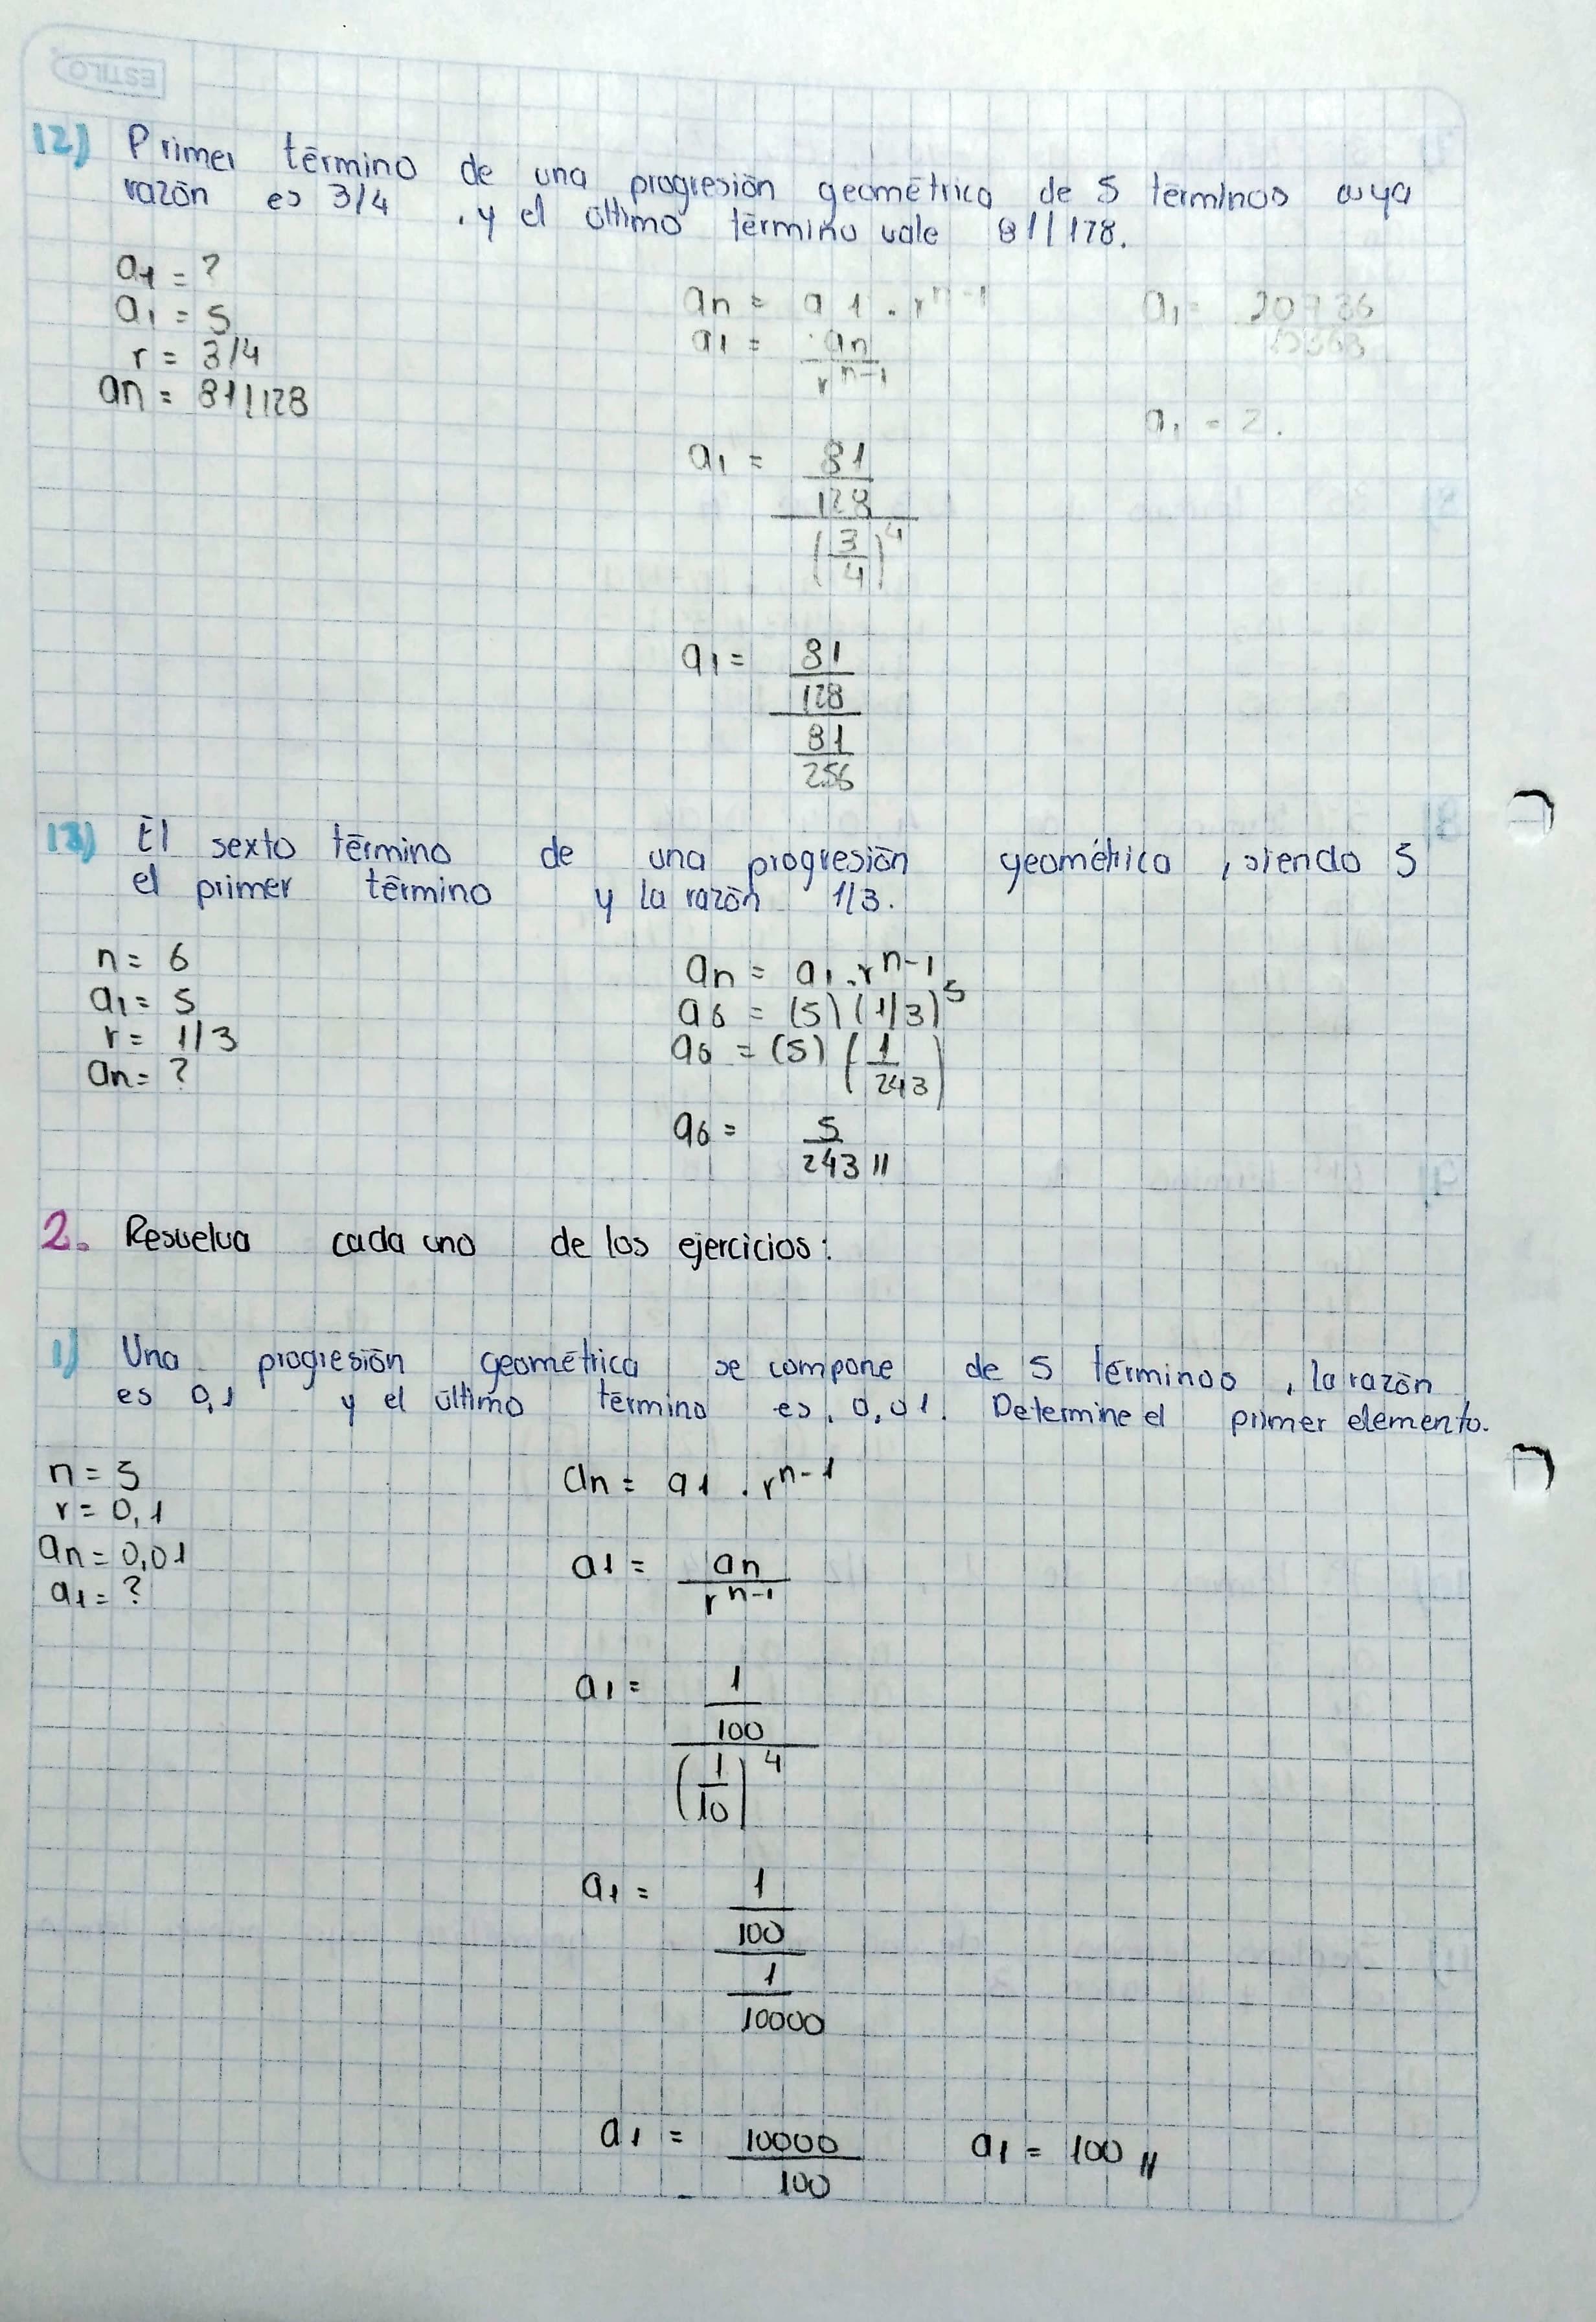 ESTILO
12) Primer término de una progresión geométrica de 5 términos cuya
razón es 3/4 , y el último término vale 81/128.
a1 = ?
a1 = 5
r = 3/4
an = 81/128
an = a1 . r^n-1
a1 = an / r^n-1
a1 = 81/128 / (3/4)^4
a1 = 81/128 / 81/256
a1 = 20736 / 10368
a1 = 2.
13) El sexto término de una progresión geométrica , siendo 5
el primer término y la razón 1/3.
n = 6
a1 = 5
r = 1/3
an = ?
an = a1 . r^n-1
a6 = (5) (1/3)^5
a6 = (5) (1/243)
a6 = 5/243 //
2. Resuelva cada uno de los ejercicios:
1) Una progresión geométrica se compone de 5 términos , la razón
es 0,1 y el último término es 0,01. Determine el primer elemento.
n = 5
r = 0,1
an = 0,01
a1 = ?
an = a1 . r^n-1
a1 = an / r^n-1
a1 = 1/100 / (1/10)^4
a1 = 1/100 / 1/10000
a1 = 10000/100
a1 = 100 //